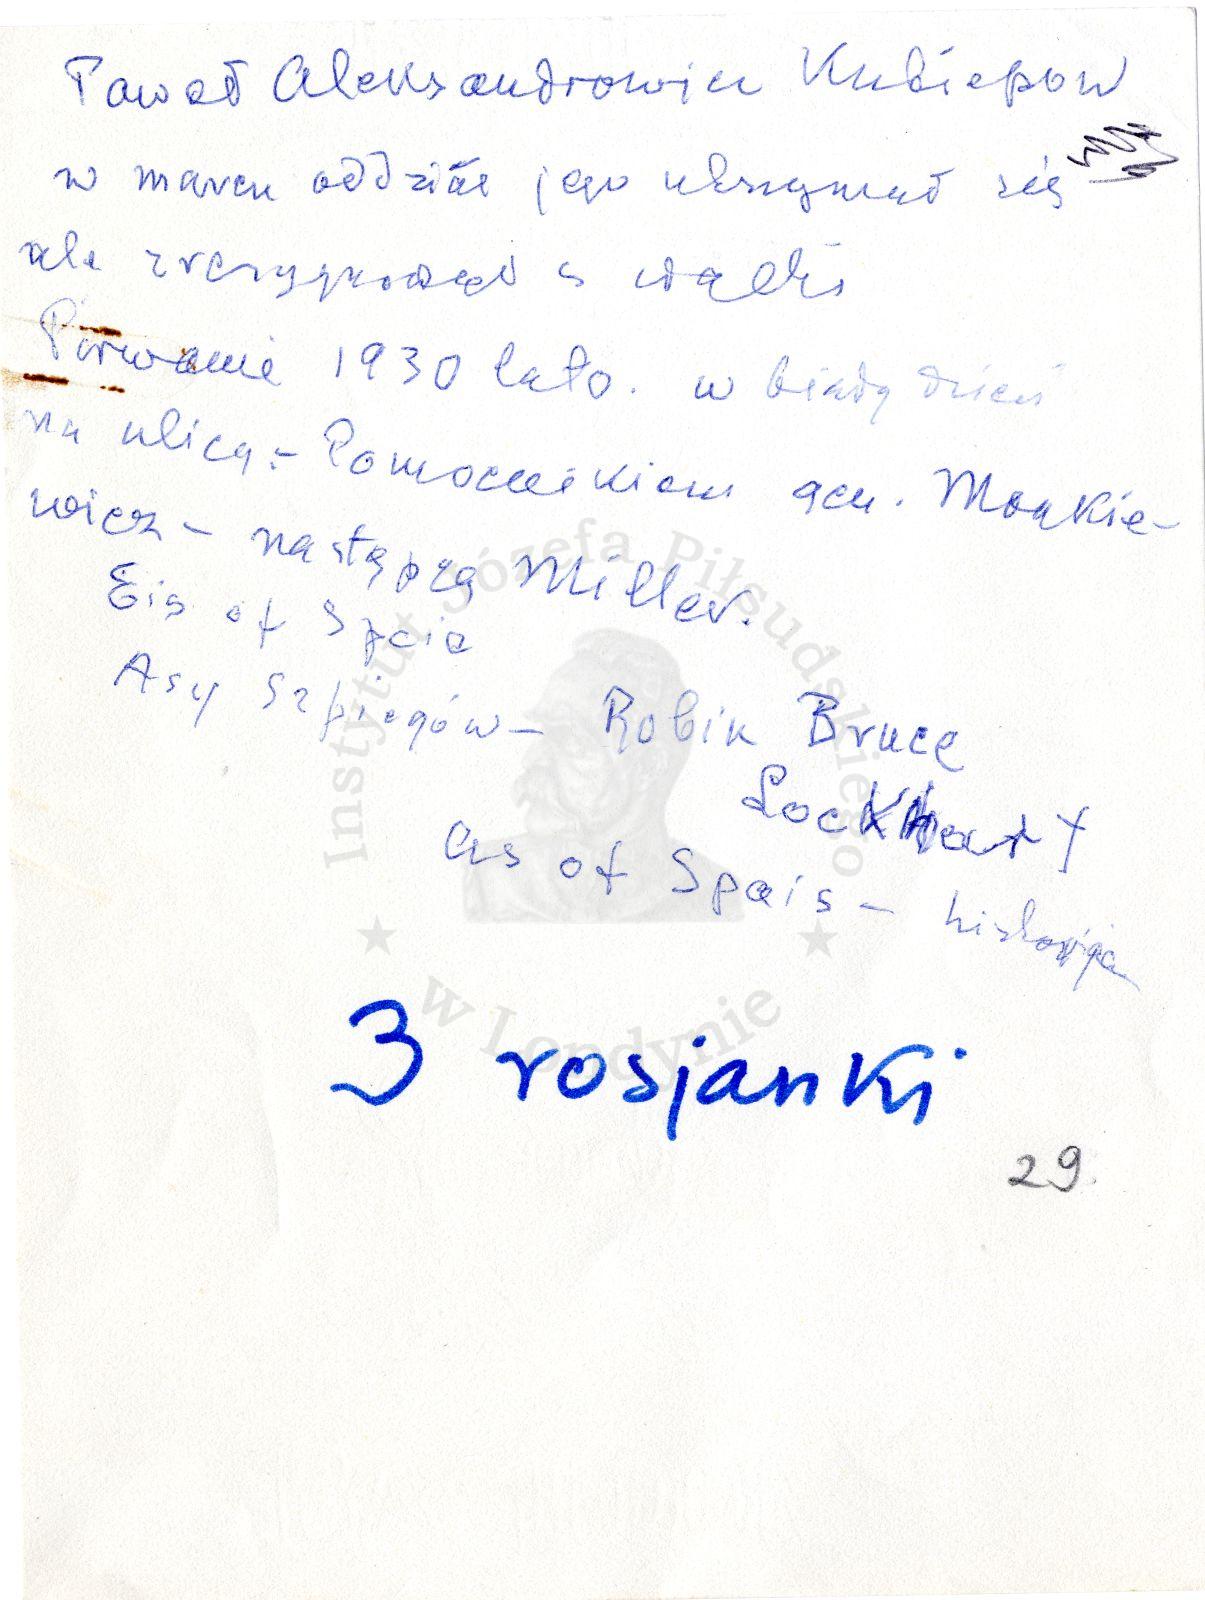 Paweł Aleksandrowicz Kubiepow
w marcu oddział jego utrzymał się
ale zrezygnował z walki
Porwanie 1930 lato. w biały dzień
na ulicy - Pomocnikiem gen. Monkie-
wicz - następcą Miller.
Eis of Spcie
Asy Szpiegów - Robin Bruce
Lockhart
As of Spais - historija
3 rosjanki
29.
Instytut Józefa Piłsudskiego
w Londynie